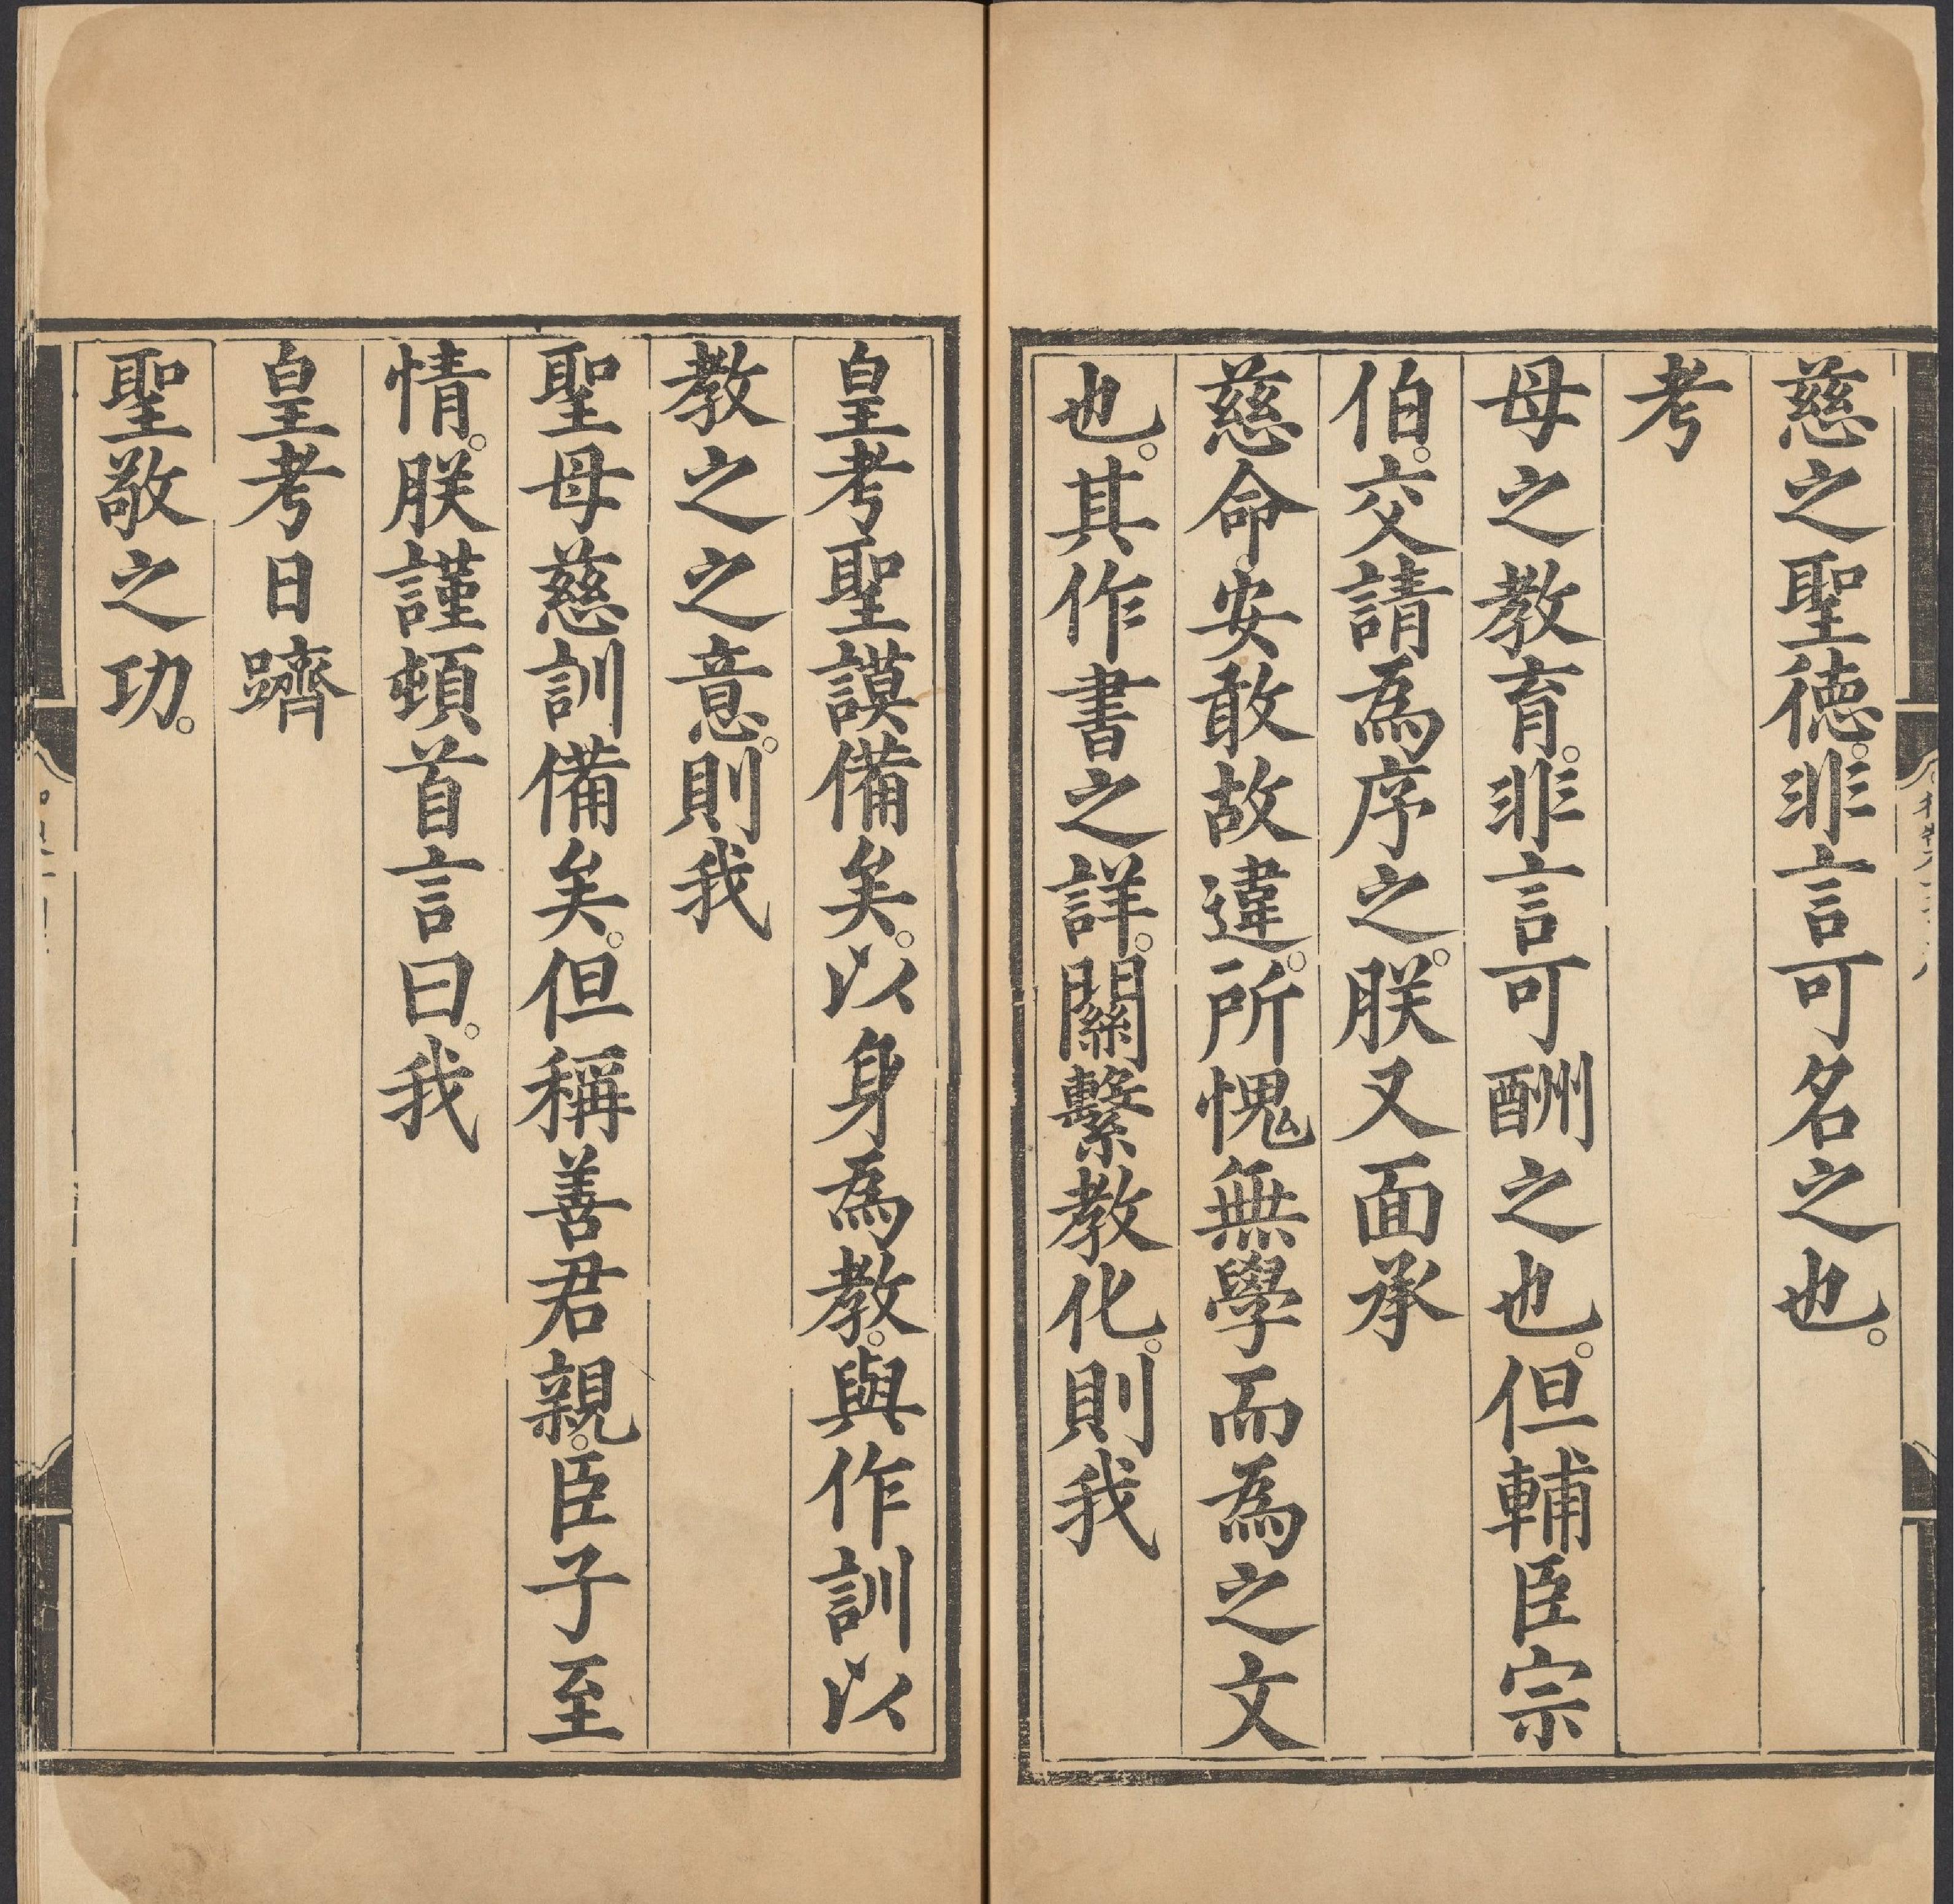 慈之聖德。非言可名之也。
考
母之教育。非言可酬之也。但輔臣宗
伯。交請為序之。朕又面承
慈命安敢故違。所愧無學而為之文
也。其作書之詳。關繫教化。則我
皇考聖謨備矣。以身為教。與作訓以
教之之意。則我
聖母慈訓備矣。但稱善君親。臣子至
情。朕謹頓首言曰。我
皇考日躋
聖敬之功。